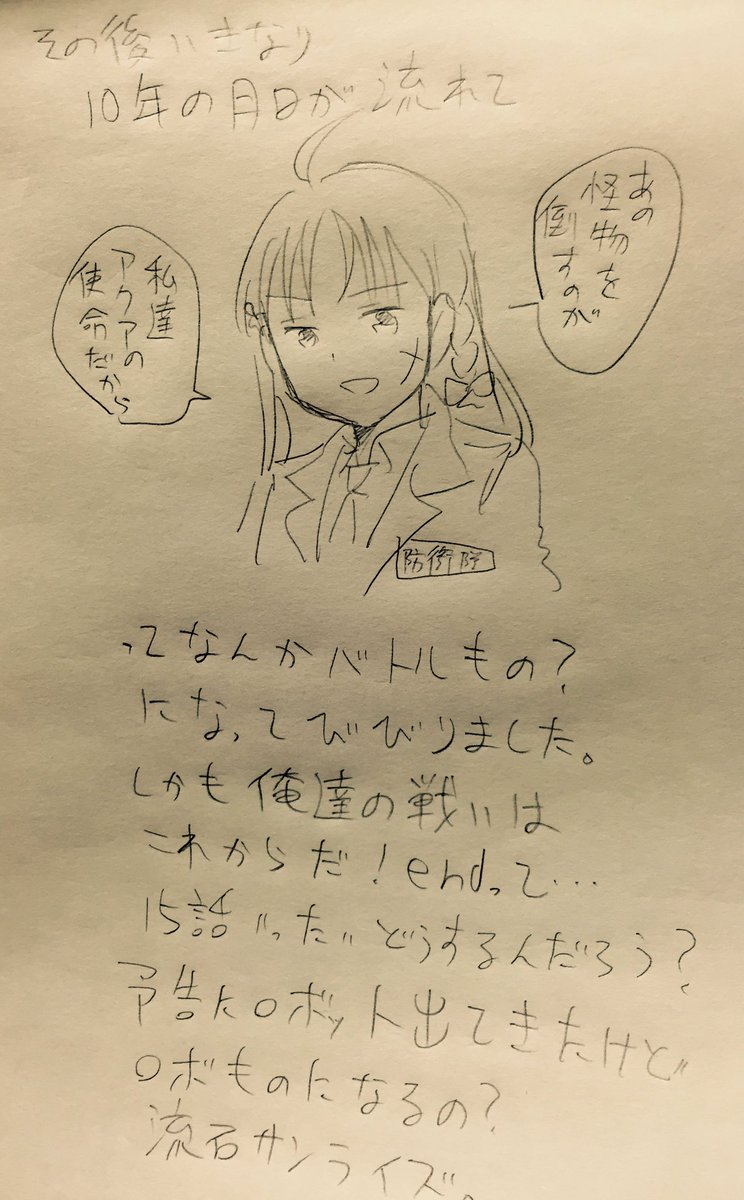 その後いきなり
10年の月日が流れて
あの
怪物を
倒すのが
私達
アクアの
使命だから
防衛隊
ってなんかバトルもの?
になってびびりました。
しかも俺達の戦いは
これからだ!endって…
15話〃った〃どうするんだろう?
予告にロボット出てきたけど
ロボものになるの?
流石サンライズ。